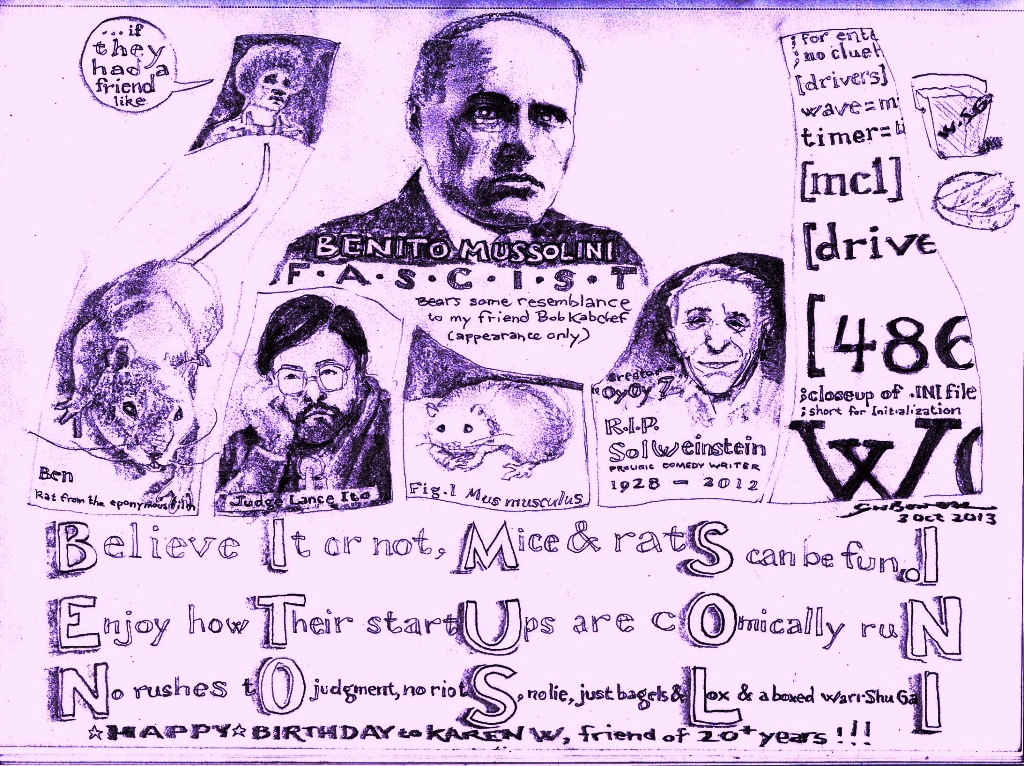 ...if
they
had a
friend
like
BENITO MUSSOLINI
F·A·S·C·I·S·T
Bears some resemblance
to my friend Bob Kabchef
(appearance only)
Ben
Rat from the eponymous film
Judge Lance Ito
Fig.1 Mus musculus
creator
"OyOy 7"
R.I.P.
Sol Weinstein
PROLIFIC COMEDY WRITER
1928 - 2012
;for ente
;no cluet
[drivers]
wave=m
timer=ti
[mci]
[drive
[486
;closeup of .INI file
;short for Initialization
W
W.S.G.
3 Oct 2013
Believe It or not, Mice & ratS can be fun. I
Enjoy how Their startUps are cOmically ruN
No rushes tO judgment, no riotS, no lie, just bagels & Lox & a boxed Warr-Shu GaI
☆HAPPY☆BIRTHDAY to KAREN W, friend of 20+ years!!!